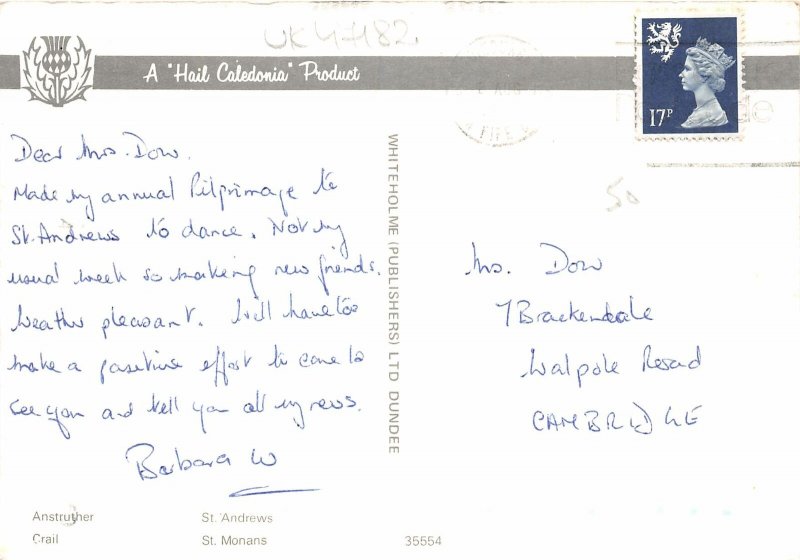 UK47182.
A "Hail Caledonia" Product
17P
50
Dear Mrs. Dow.
Made my annual Pilgrimage to
St. Andrews to dance. Not my
usual week so making new friends.
Weather pleasant. Will have to
make a positive effort to come to
see you and tell you all my news.
Barbara W
WHITEHOLME (PUBLISHERS) LTD DUNDEE
Mrs. Dow
7 Brackendale
Walpole Road
CAMBRIDGE
Anstruther St. Andrews
Crail St. Monans 35554